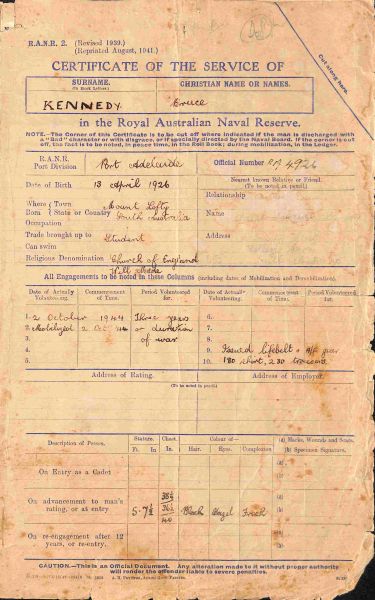 R.A.N.R. 2. (Revised 1939.)
(Reprinted August, 1941.)
Cut along here.
CERTIFICATE OF THE SERVICE OF
SURNAME. CHRISTIAN NAME OR NAMES.
(In Block Letters)
KENNEDY Bruce
in the Royal Australian Naval Reserve.
NOTE.—The Corner of this Certificate is to be cut off where indicated if the man is discharged with
a "Bad" character or with disgrace, or if specially directed by the Naval Board. If the corner is cut
off, the fact is to be noted, in peace time, in the Roll Book; during mobilization, in the Ledger.
R.A.N.R. Port Division Port Adelaide Official Number 4726
Nearest known Relative or Friend.
(To be noted in pencil.)
Date of Birth 13 April 1926
Relationship
Where Born Town Mount Lofty
State or Country South Australia
Name
Occupation
Trade brought up to Student
Address
Can swim
Religious Denomination Church of England
All Engagements to be noted in these Columns (including dates of Mobilization and Demobilization).
Date of Actually Volunteering. Commencement of Time. Period Volunteered for. Date of Actually Volunteering. Commencement of Time. Period Volunteered for.
1. 2 October 1944 Three years 6.
2. Mobilized 2 Oct 44 or duration 7.
3. of war 8.
4. 9. Issued lifebelt
5. 10.
Address of Rating. Address of Employer.
(To be noted in pencil.)
Description of Person. Stature. Chest. Colour of— (a) Marks, Wounds and Scars.
Ft. In. In. Hair. Eyes. Complexion (b) Specimen Signature.
On Entry as a Cadet (a)
(b)
On advancement to man's rating, or at entry 5. 7½ 38½ 36½ 40 Black Hazel Fresh (a)
(b)
On re-engagement after 12 years, or re-entry. (a)
(b)
CAUTION.—This is an Official Document. Any alteration made to it without proper authority
will render the offender liable to severe penalties.